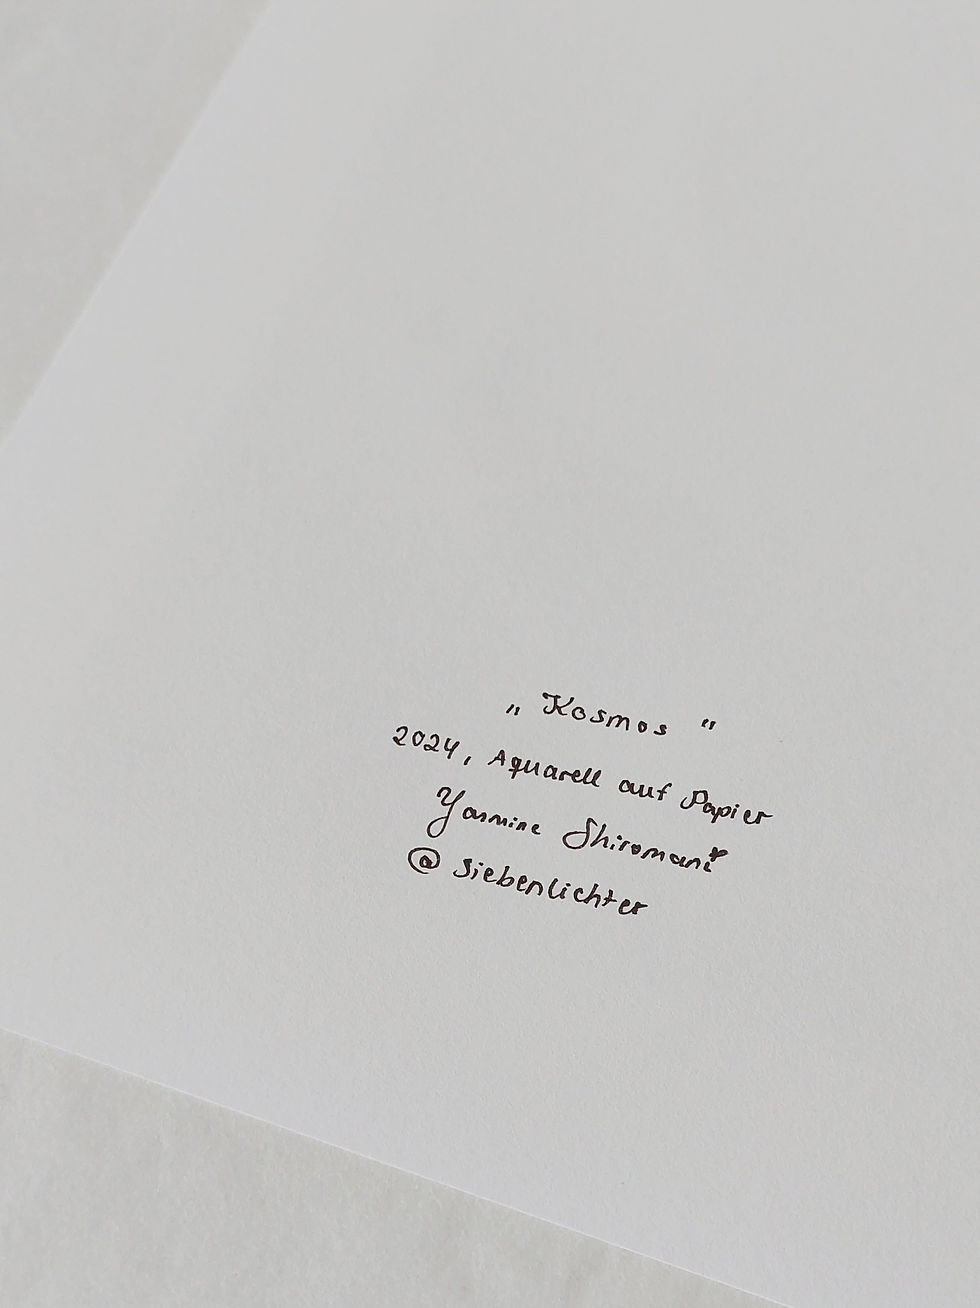 „Kosmos“
2024, Aquarell auf Papier
Yasmine Shiromani
@siebenlichter